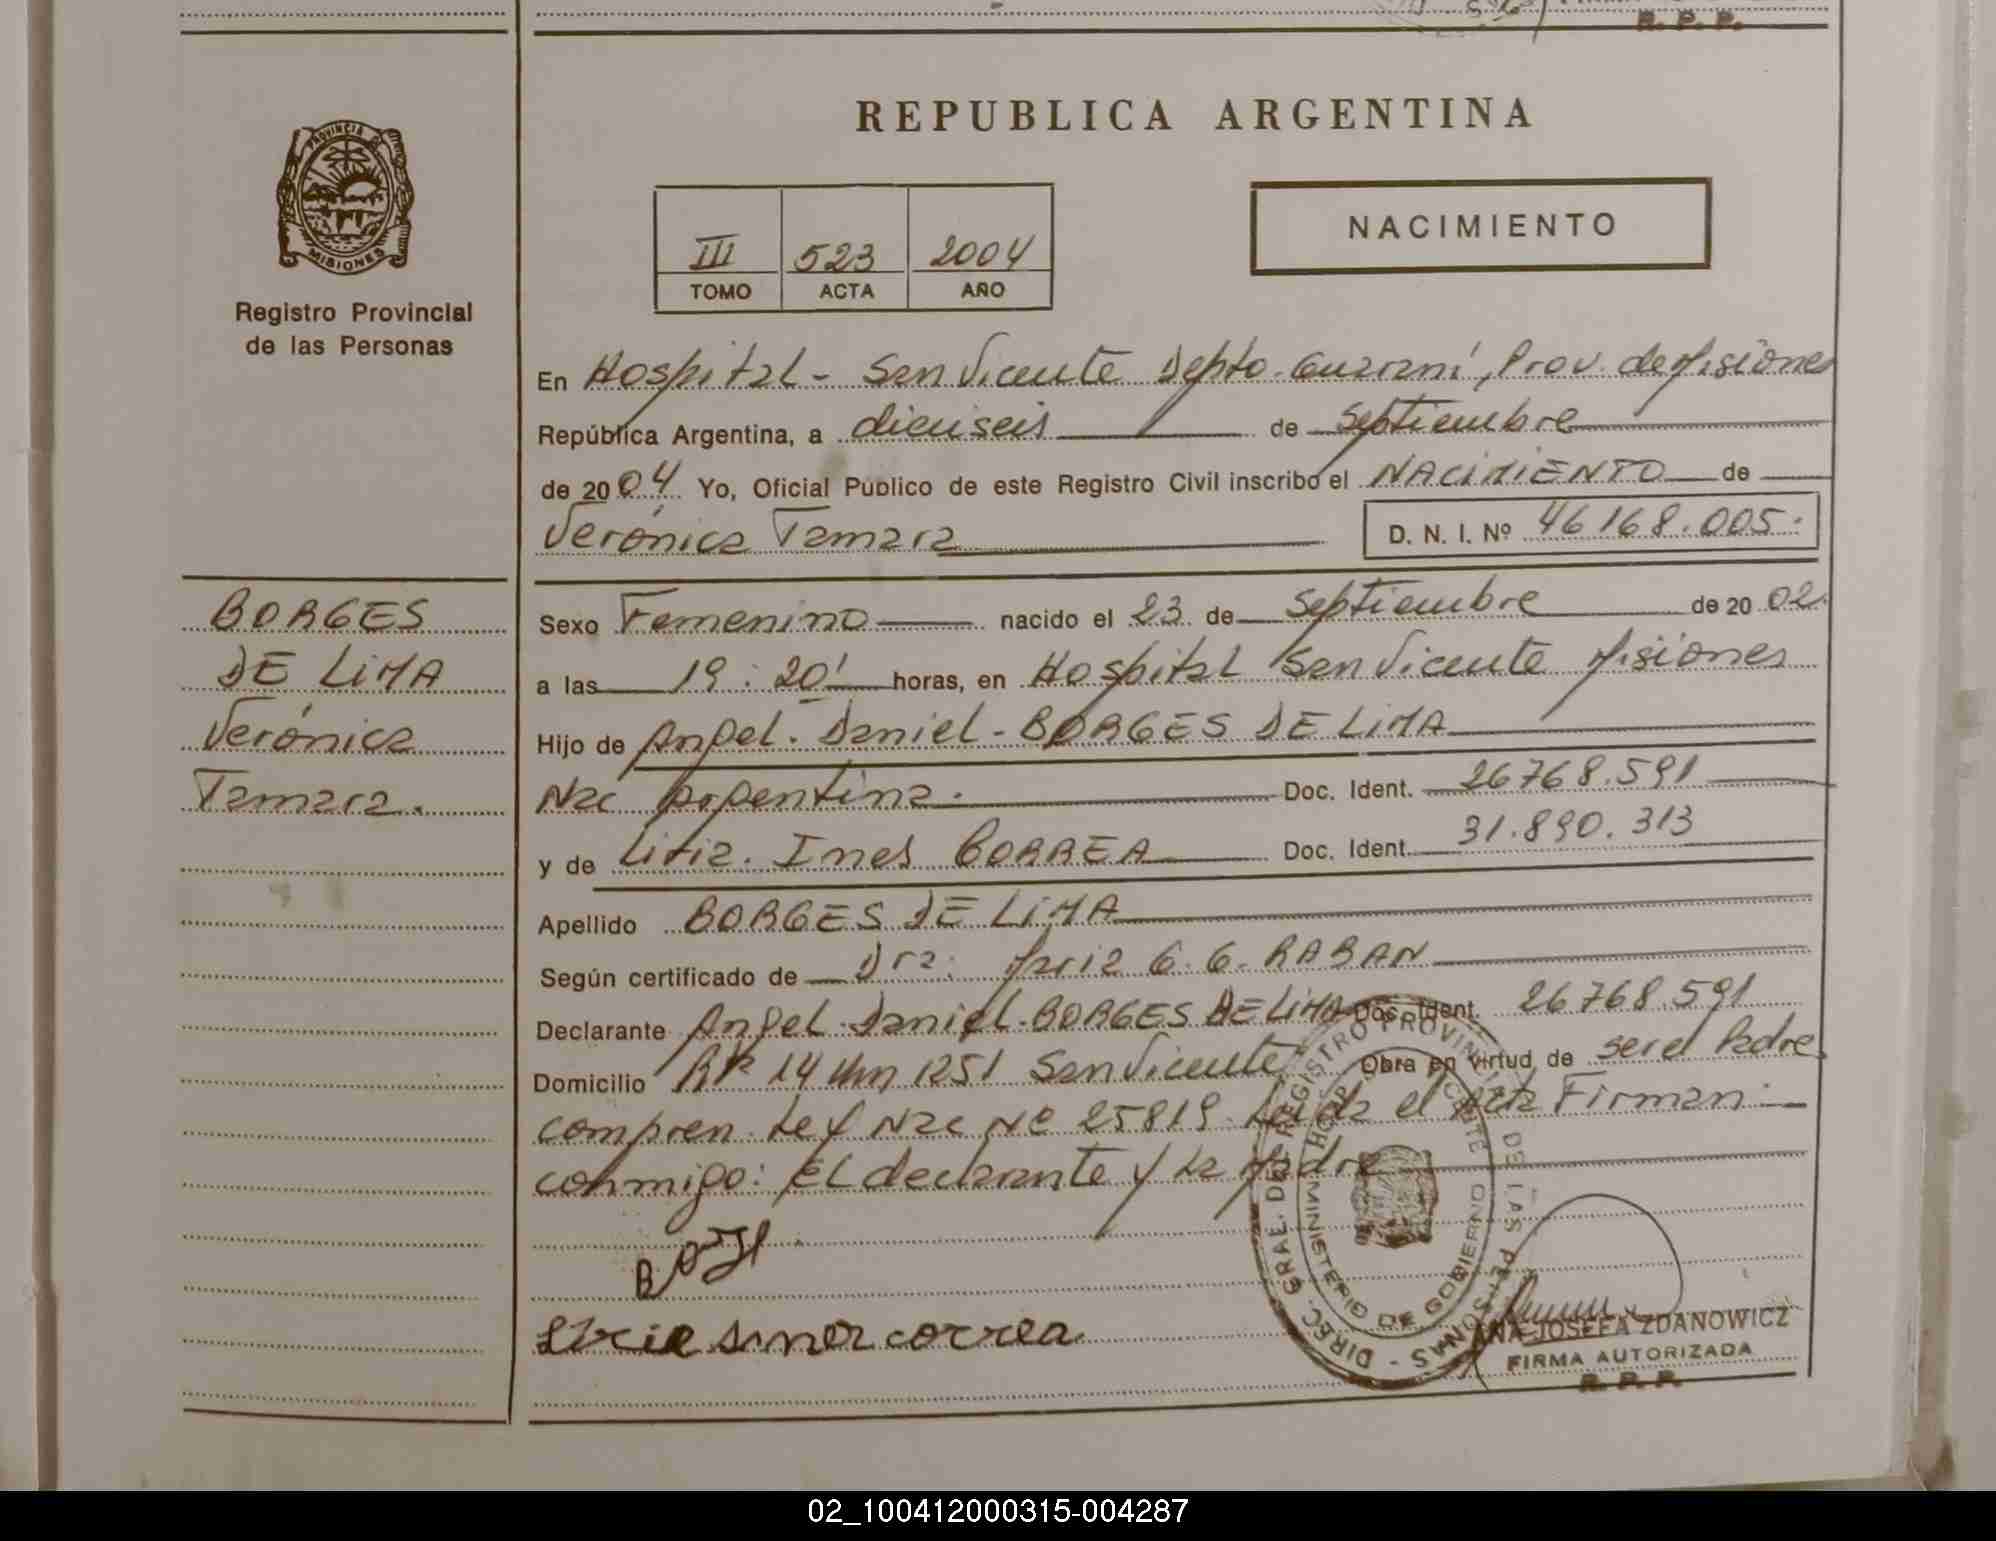 R. P. P.
REPUBLICA ARGENTINA
PROVINCIA DE
MISIONES
Registro Provincial
de las Personas
III 523 2004
TOMO ACTA AÑO
NACIMIENTO
En Hospital - San Vicente Depto. Guaraní, Prov. de Misiones
República Argentina, a dieciseis de Septiembre
de 2004 Yo, Oficial Público de este Registro Civil inscribo el NACIMIENTO de
Verónica Tamara D. N. I. Nº 46168.005.
BORGES
DE LiMA
Verónica
Tamara.
Sexo Femenino nacido el 23 de Septiembre de 2002.
a las 19:20' horas, en Hospital San Vicente Misiones
Hijo de Angel. Daniel - BORGES DE LiMA
Nac Argentina. Doc. Ident. 26768.591
y de Ines CORREA Doc. Ident. 31.890.313
Apellido BORGES DE LiMA
Según certificado de Dra. Maria G. G. RABAN
Declarante Angel Daniel. BORGES DE LiMA Doc. Ident. 26768.591
Domicilio Rta 14 Km 1251 San Vicente Obra en virtud de ser el Padre
compren. Ley Nac Nº 25819. Leida el Acta Firman
conmigo: El declarante y La Madre
correa
DIREC. GRAL. DEL REGISTRO PROVINCIAL DE LAS PERSONAS
MINISTERIO DE GOBIERNO
ANA JOSEFA ZDANOWICZ
FIRMA AUTORIZADA
R. P. P.
02_100412000315-004287